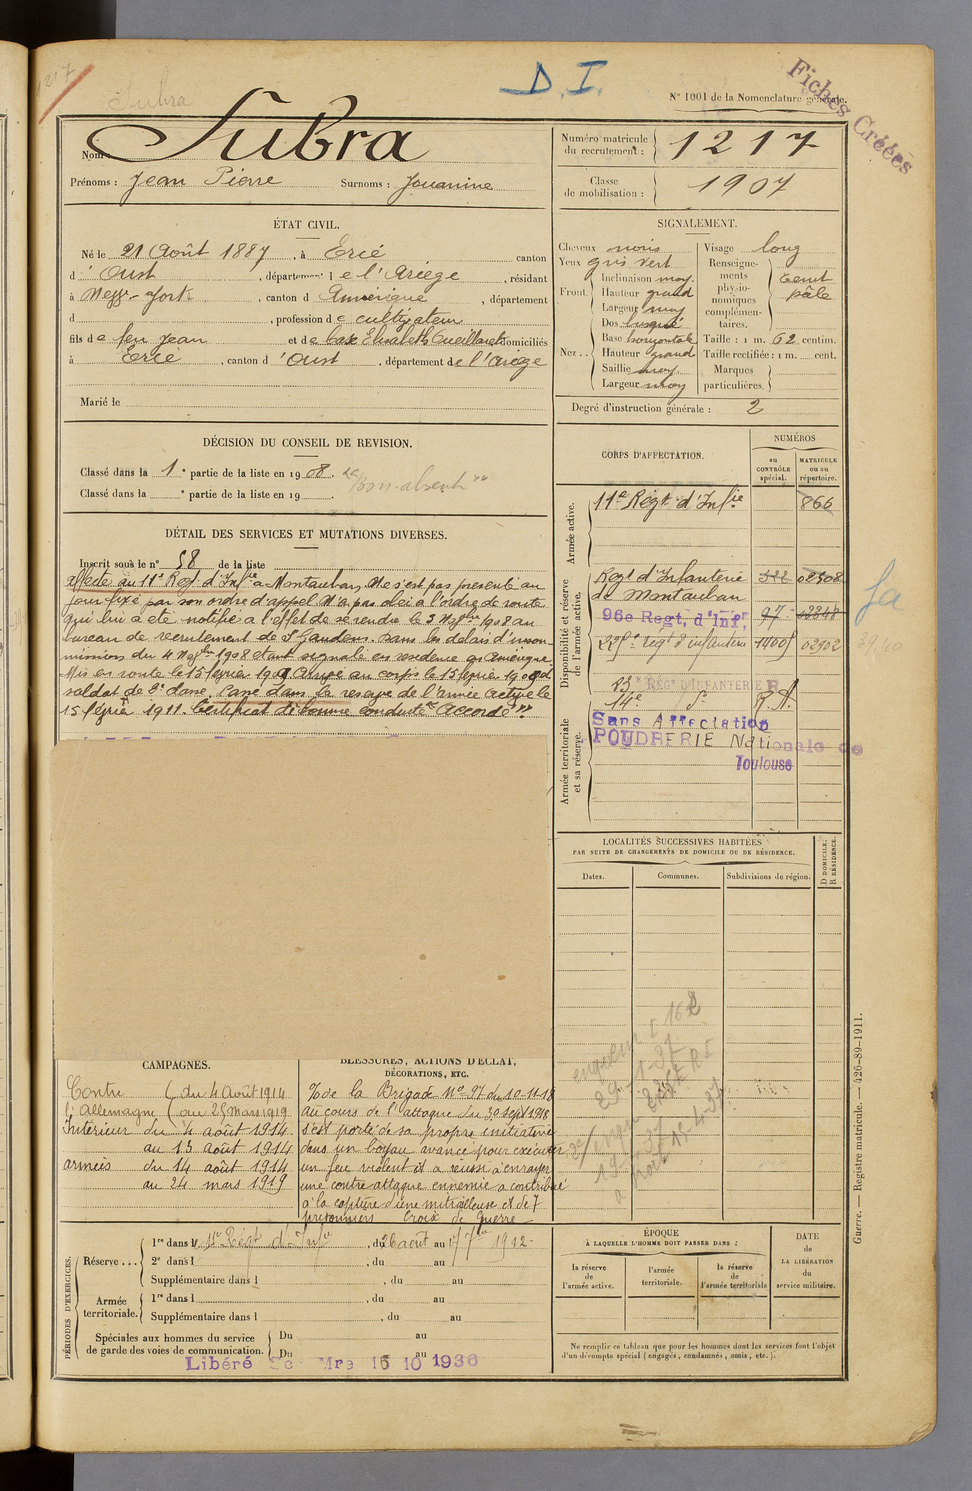 1217
Subra
D. I.
N° 1001 de la Nomenclature générale.
Fiches Créées
Nom : Subra
Prénoms : Jean Pierre Surnoms : Jouanine
Numéro matricule du recrutement : 1217
Classe de mobilisation : 1907
ÉTAT CIVIL.
Né le 21 Août 1887, à Ercé canton
d'Oust, département de l'Ariège, résidant
à New-York, canton d Amérique, département
d , profession de cultivateur
fils de feu Jean et de Elisabeth domiciliés
à Ercé, canton d'Oust, département de l'Ariège
Marié le
SIGNALEMENT.
Cheveux noirs
Yeux gris vert
Front. Inclinaison moy.
Hauteur grand
Largeur moy
Nez. Dos busqué
Base horizontale
Hauteur grand
Saillie moy.
Largeur moy
Visage long
Renseignements physionomiques complémentaires. teint pâle
Taille : 1 m. 62 centim.
Taille rectifiée : 1 m. cent.
Marques particulières.
Degré d'instruction générale : 2
DÉCISION DU CONSEIL DE REVISION.
Classé dans la 1e partie de la liste en 1908. "Bon absent"
Classé dans la e partie de la liste en 19 .
DÉTAIL DES SERVICES ET MUTATIONS DIVERSES.
Inscrit sous le n° 58 de la liste
affecté au 11e Regt d'Infie à Montauban. Ne s'est pas présenté au
jour fixé par son ordre d'appel. N'a pas obéi à l'ordre de route
qui lui a été notifié à l'effet de se rendre le 3 9bre 1908 au
bureau de recrutement de St Gaudens. dans les délais d'insou-
mission du 4 1908 étant signalé en résidence en Amérique
Mis en route le 15 février 1909 Arrivé au corps le 15 février 1909
soldat de 2e classe. Passé dans la réserve de l'armée active le
15 février 1911. Certificat de bonne conduite "Accordé"
CORPS D'AFFECTATION.
NUMÉROS
au CONTRÔLE spécial.
MATRICULE ou au répertoire.
Armée active.
11e Régt d'Infie 866
Disponibilité et réserve de l'armée active.
Regt d'Infanterie 322 02308
de Montauban
96e Regt, d'Inf, 97 03348
225e regt d'infanterie 02902
RÉGt D'INFANTERIE
14e R.A.
Armée territoriale et sa réserve.
Sans Affectation
POUDRERIE Nationale de
Toulouse
LOCALITÉS SUCCESSIVES HABITÉES
PAR SUITE DE CHANGEMENTS DE DOMICILE OU DE RÉSIDENCE.
Dates.
Communes.
Subdivisions de région.
D DOMICILE.
R RÉSIDENCE.
CAMPAGNES.
Contre (du 4 Août 1914
l'Allemagne (au 25 Mars 1919
Intérieur du 4 août 1914
au 13 août 1914
armées du 14 août 1914
au 24 mars 1919
BLESSURES, ACTIONS D'ÉCLAT,
DÉCORATIONS, ETC.
% de la Brigade No 97 du 10-11-18
Au cours de l'attaque du 30 sept 1918
s'est porté de sa propre initiative
dans un boyau avancé pour exécuter
un feu violent il a réussi à enrayer
une contre-attaque ennemie a contribué
à la capture d'une mitrailleuse et de 7
prisonniers Croix de Guerre
PÉRIODES D'EXERCICES.
Réserve ... 1re dans l 11e Régt d'Infie, du 26 août au 7bre 1912
2e dans l , du au
Supplémentaire dans l , du au
Armée territoriale. 1re dans l , du au
Supplémentaire dans l , du au
Spéciales aux hommes du service de garde des voies de communication. Du au
Du au
Libéré Mre 15 10 1936
ÉPOQUE
À LAQUELLE L'HOMME DOIT PASSER DANS :
la réserve de l'armée active.
l'armée territoriale.
la réserve de l'armée territoriale
DATE de LA LIBÉRATION du service militaire.
Ne remplir ce tableau que pour les hommes dont les services font l'objet
d'un décompte spécial (engagés, condamnés, omis, etc.).
Guerre. — Registre matricule. — 426-89-1911.